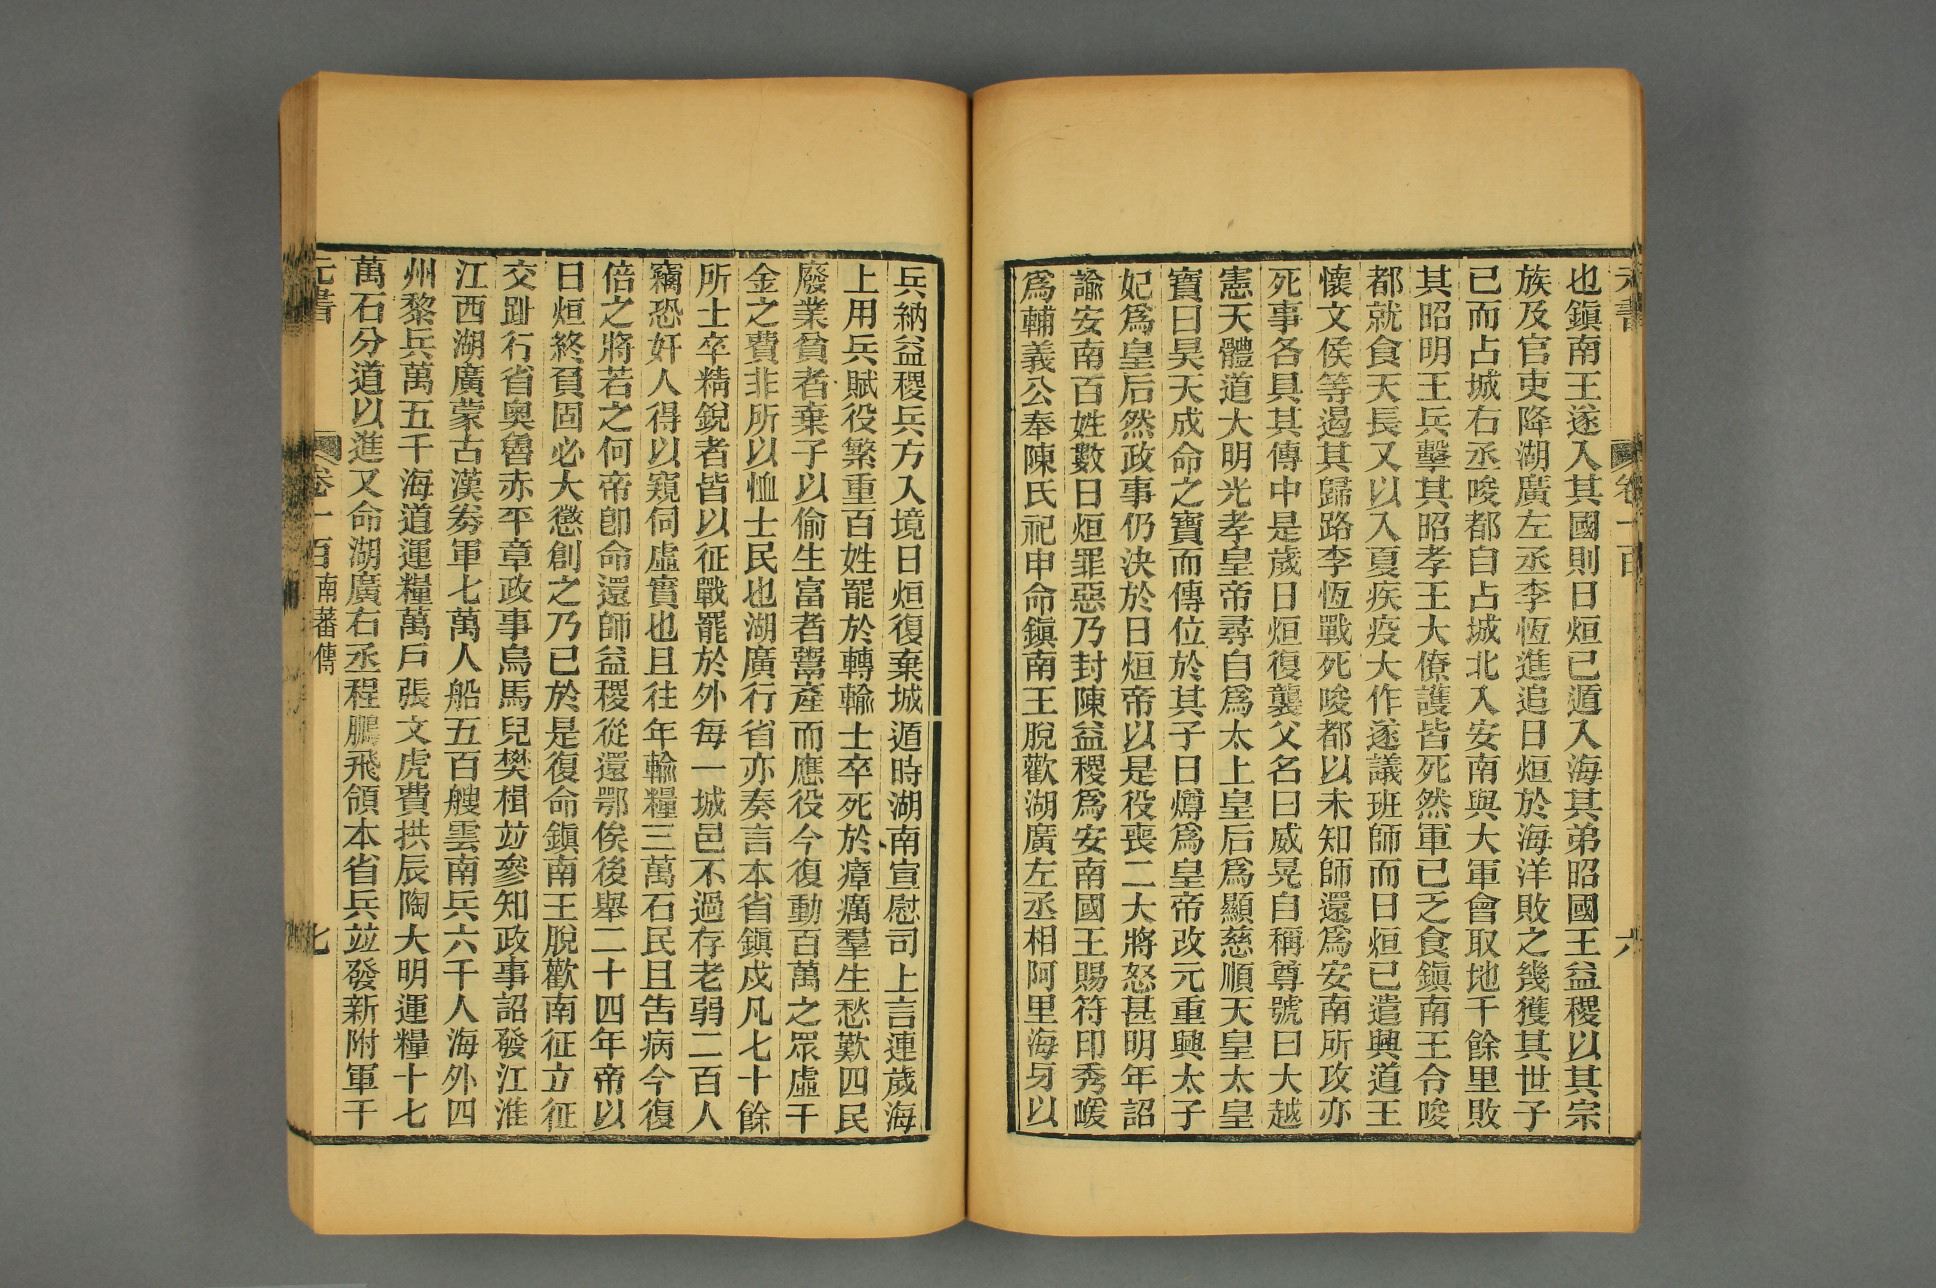 元書 卷一百 六
也鎭南王遂入其國則日烜已遁入海其弟昭國王益稷以其宗
族及官吏降湖廣左丞李恆進追日烜於海洋敗之幾獲其世子
已而占城右丞唆都自占城北入安南與大軍會取地千餘里敗
其昭明王兵擊其昭孝王大僚護皆死然軍已乏食鎭南王令唆
都就食天長又以入夏疾疫大作遂議班師而日烜已遣興道王
懷文侯等遏其歸路李恆戰死唆都以未知師還爲安南所攻亦
死事各具其傳中是歲日烜復襲父名曰威晃自稱尊號曰大越
憲天體道大明光孝皇帝尋自爲太上皇后爲顯慈順天皇太皇
寶曰昊天成命之寶而傳位於其子日燇爲皇帝改元重興太子
妃爲皇后然政事仍決於日烜帝以是役喪二大將怒甚明年詔
諭安南百姓數日烜罪惡乃封陳益稷爲安南國王賜符印秀嵈
爲輔義公奉陳氏祀申命鎭南王脫歡湖廣左丞相阿里海身以
兵納益稷兵方入境日烜復棄城遁時湖南宣慰司上言連歲海
上用兵賦役繁重百姓罷於轉輸士卒死於瘴癘羣生愁歎四民
廢業貧者棄子以偷生富者鬻產而應役今復動百萬之眾虛千
金之費非所以恤士民也湖廣行省亦奏言本省鎭戍凡七十餘
所士卒精銳者皆以征戰罷於外每一城邑不過存老弱二百人
竊恐奸人得以窺伺虛實也且往年輸糧三萬石民且告病今復
倍之將若之何帝卽命還師益稷從還鄂俟後舉二十四年帝以
日烜終負固必大懲創之乃已於是復命鎭南王脫歡南征立征
交趾行省奧魯赤平章政事烏馬兒樊楫竝參知政事詔發江淮
江西湖廣蒙古漢劵軍七萬人船五百艘雲南兵六千人海外四
州黎兵萬五千海道運糧萬戶張文虎費拱辰陶大明運糧十七
萬石分道以進又命湖廣右丞程鵬飛領本省兵竝發新附軍千
元書 卷一百 南蕃傳 七